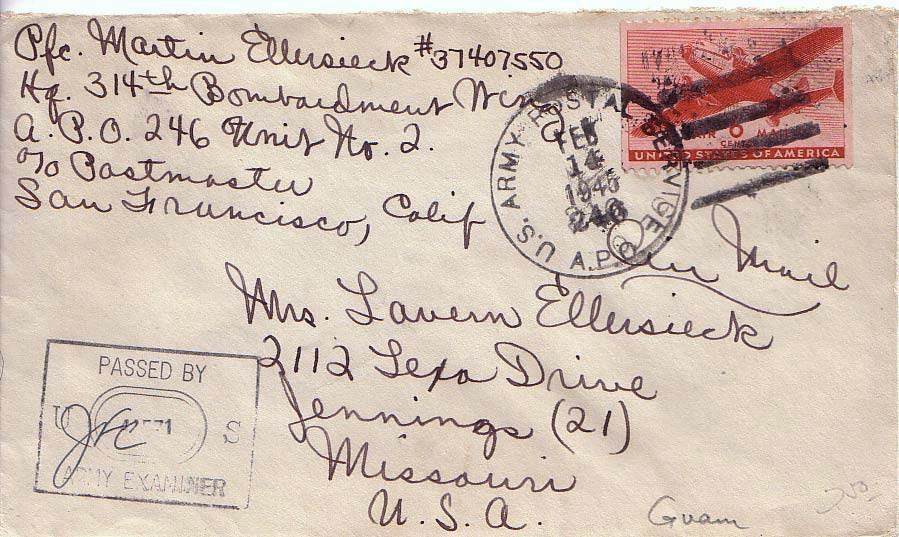 Pfc. Martin Ellersieck #37407550
Hq. 314th Bombardment Wing
A.P.O. 246 Unit No. 2.
c/o Postmaster
San Francisco, Calif
U.S. ARMY POSTAL SERVICE A.P.O.
FEB
14
1945
246
AIR 6 MAIL
CENTS
UNITED STATES OF AMERICA
Air Mail
Mrs. Lavern Ellersieck
2112 Lexa Drive
Jennings (21)
Missouri
U.S.A.
PASSED BY
U S
ARMY EXAMINER
Guam